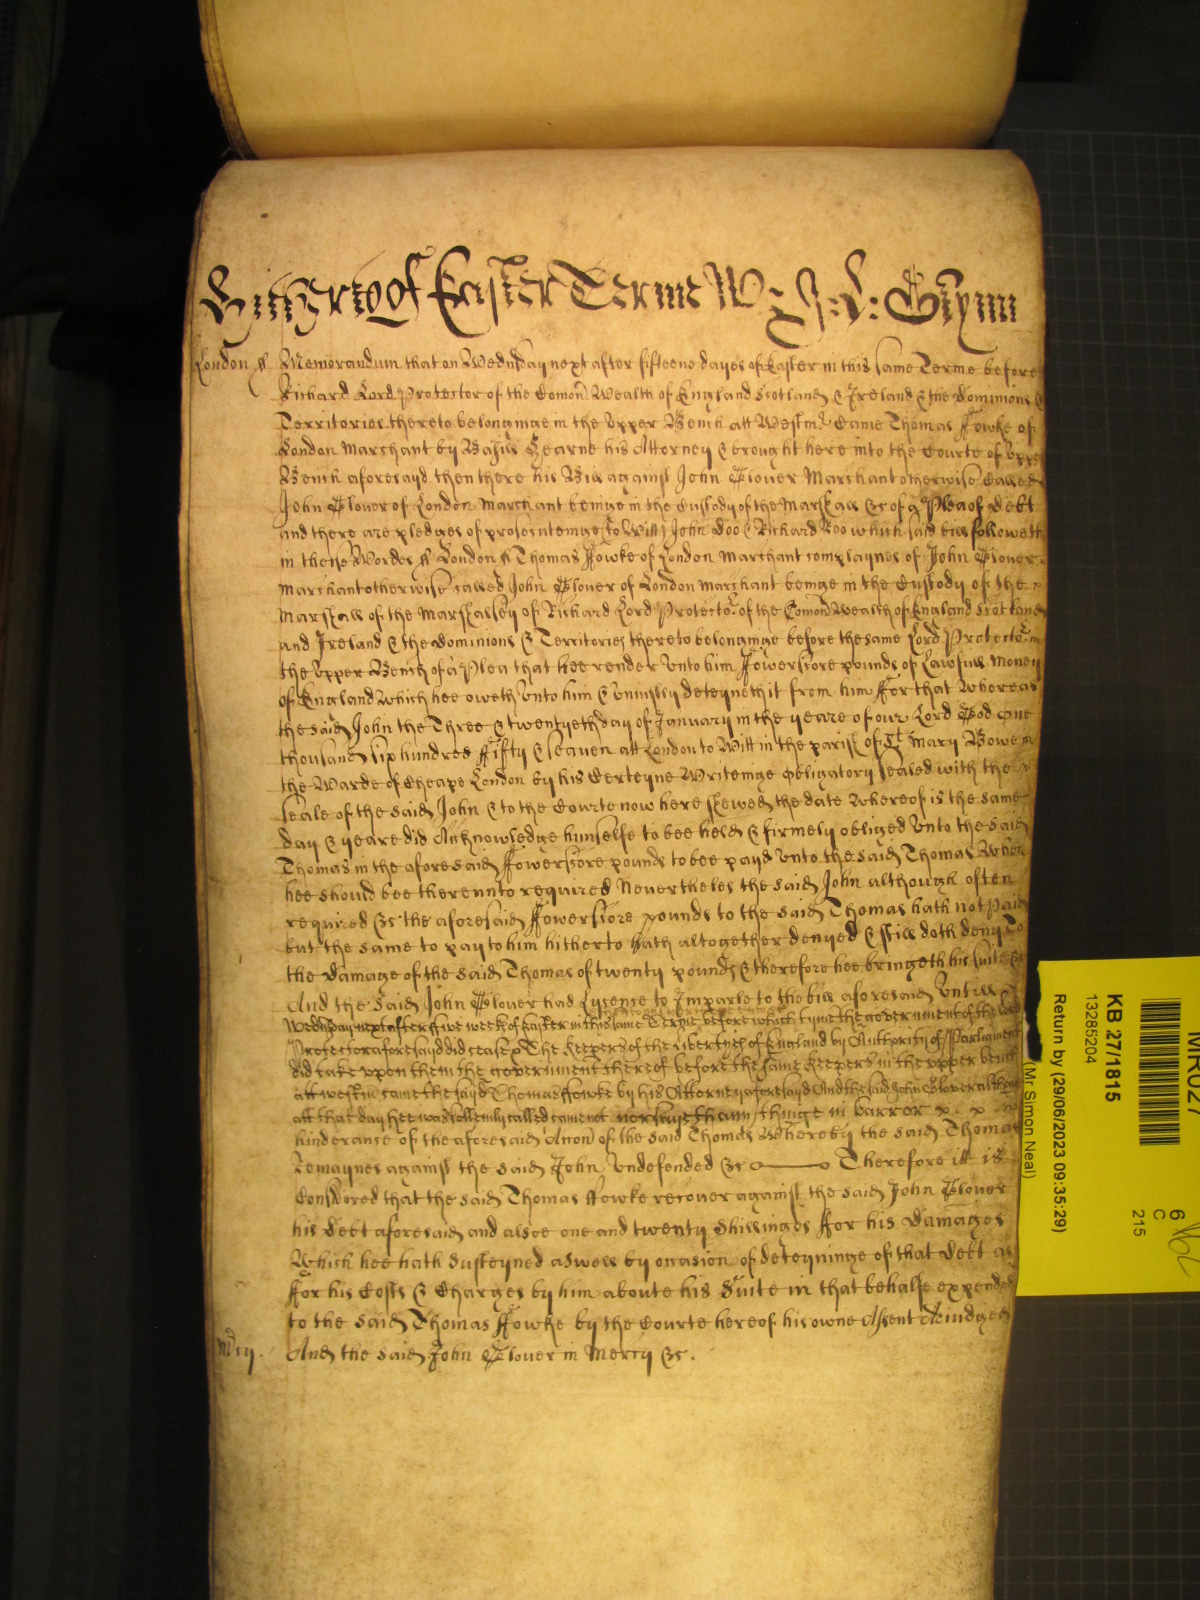 Hitherto of Easter Terme W: J: L: Glynn
London ss Memorandum that on Wednsday next after fifteene dayes of Easter in this same Terme before
Richard Lord Protector of the Comon Wealth of England Scotland & Ireland & the Dominions &
Territories thereto belonginge in the Upper Bench att Westmr Came Thomas Fowke of
London Marchant by Basill Hearne his Attorney & brought here into the Courte of Upper
Bench aforesayd then there his Bill against John Glover Marchant otherwise Called
John Glover of London Marchant beinge in the Custody of the Marshall &c of a Plea of debt
and there are pledges of prosecuteinge (to Witt) John Doo & Richard Roo which said bill followeth
in these Wordes ss London ss Thomas Fowke of London Marchant complaynes of John Glover
Marchant otherwise called John Glover of London marchant beinge in the Custody of the
Marshall of the Marshallsey of Richard Lord Protector of the Comon Wealth of England Scotland
and Ireland & the Dominions & Territories thereto belonginge before the same Lord Protector in
the Upper Bench of a Plea that hee render Unto him Fowerscore pounds of Lawfull Money
of England Which hee oweth Unto him & Uniustly deteyneth it from him For that Whereas
the said John the Three & twentyeth day of January in the yeare of our Lord God One
thousand six hundred Fifty & seaven att London to Witt in the parish of St Mary Bowe in
the Warde of Cheape London by his Certeyne Writeinge Obligatory sealed with the
seale of the said John & to the Courte now here shewed the date Whereof is the same
day & yeare did Acknowledge himselfe to bee held & firmely obliged Unto the said
Thomas in the aforesaid Fowerscore pounds to bee payd Unto the said Thomas When
hee should bee thereunto required Nevertheles the said John although often
required &c the aforesaid Fowerscore pounds to the said Thomas hath not paid
but the same to pay to him hitherto hath altogether denyed & still doth deny To
the damage of the said Thomas of twenty pounds & therefore hee bringeth his suite &c
And the said John Glover had Lycence to Imparle to the bill aforesaid Untill
Wednsday next after five weeks of Easter in this same Terme before which tyme the government of the Lord
Protector aforesayd did cease & The Keepers of the Libertyes of England by Authority of Parliament
did take upon them the government thereof before the same Keepers in the upper bench
att westmr came the sayd Thomas Fowke by his Attorney aforesayd And the said John Glover although
att that day hee was sollemly called came not nor sayeth any thinge in barr or
hinderance of the aforesaid Accon of the said Thomas Whereby the said Thomas
Remaynes against the said John Undefended &c Therefore itt is
Considred that the said Thomas Fowke recover against the said John Glover
his debt aforesaid and alsoe one and twenty Shillinges For his Damages
Which hee hath susteyned aswell by occasion of deteyninge of that debt as
For his Costs & Charges by him aboute his Suite in that behalfe expended
to the said Thomas Fowke by the Courte here of his owne Assent Adiudged
Mcy. And the said John Glover in Mercy &c.
MR027
6
C
215
KB 27/1815
13285204
Return by (29/06/2023 09:35:29)
(Mr Simon Neal)